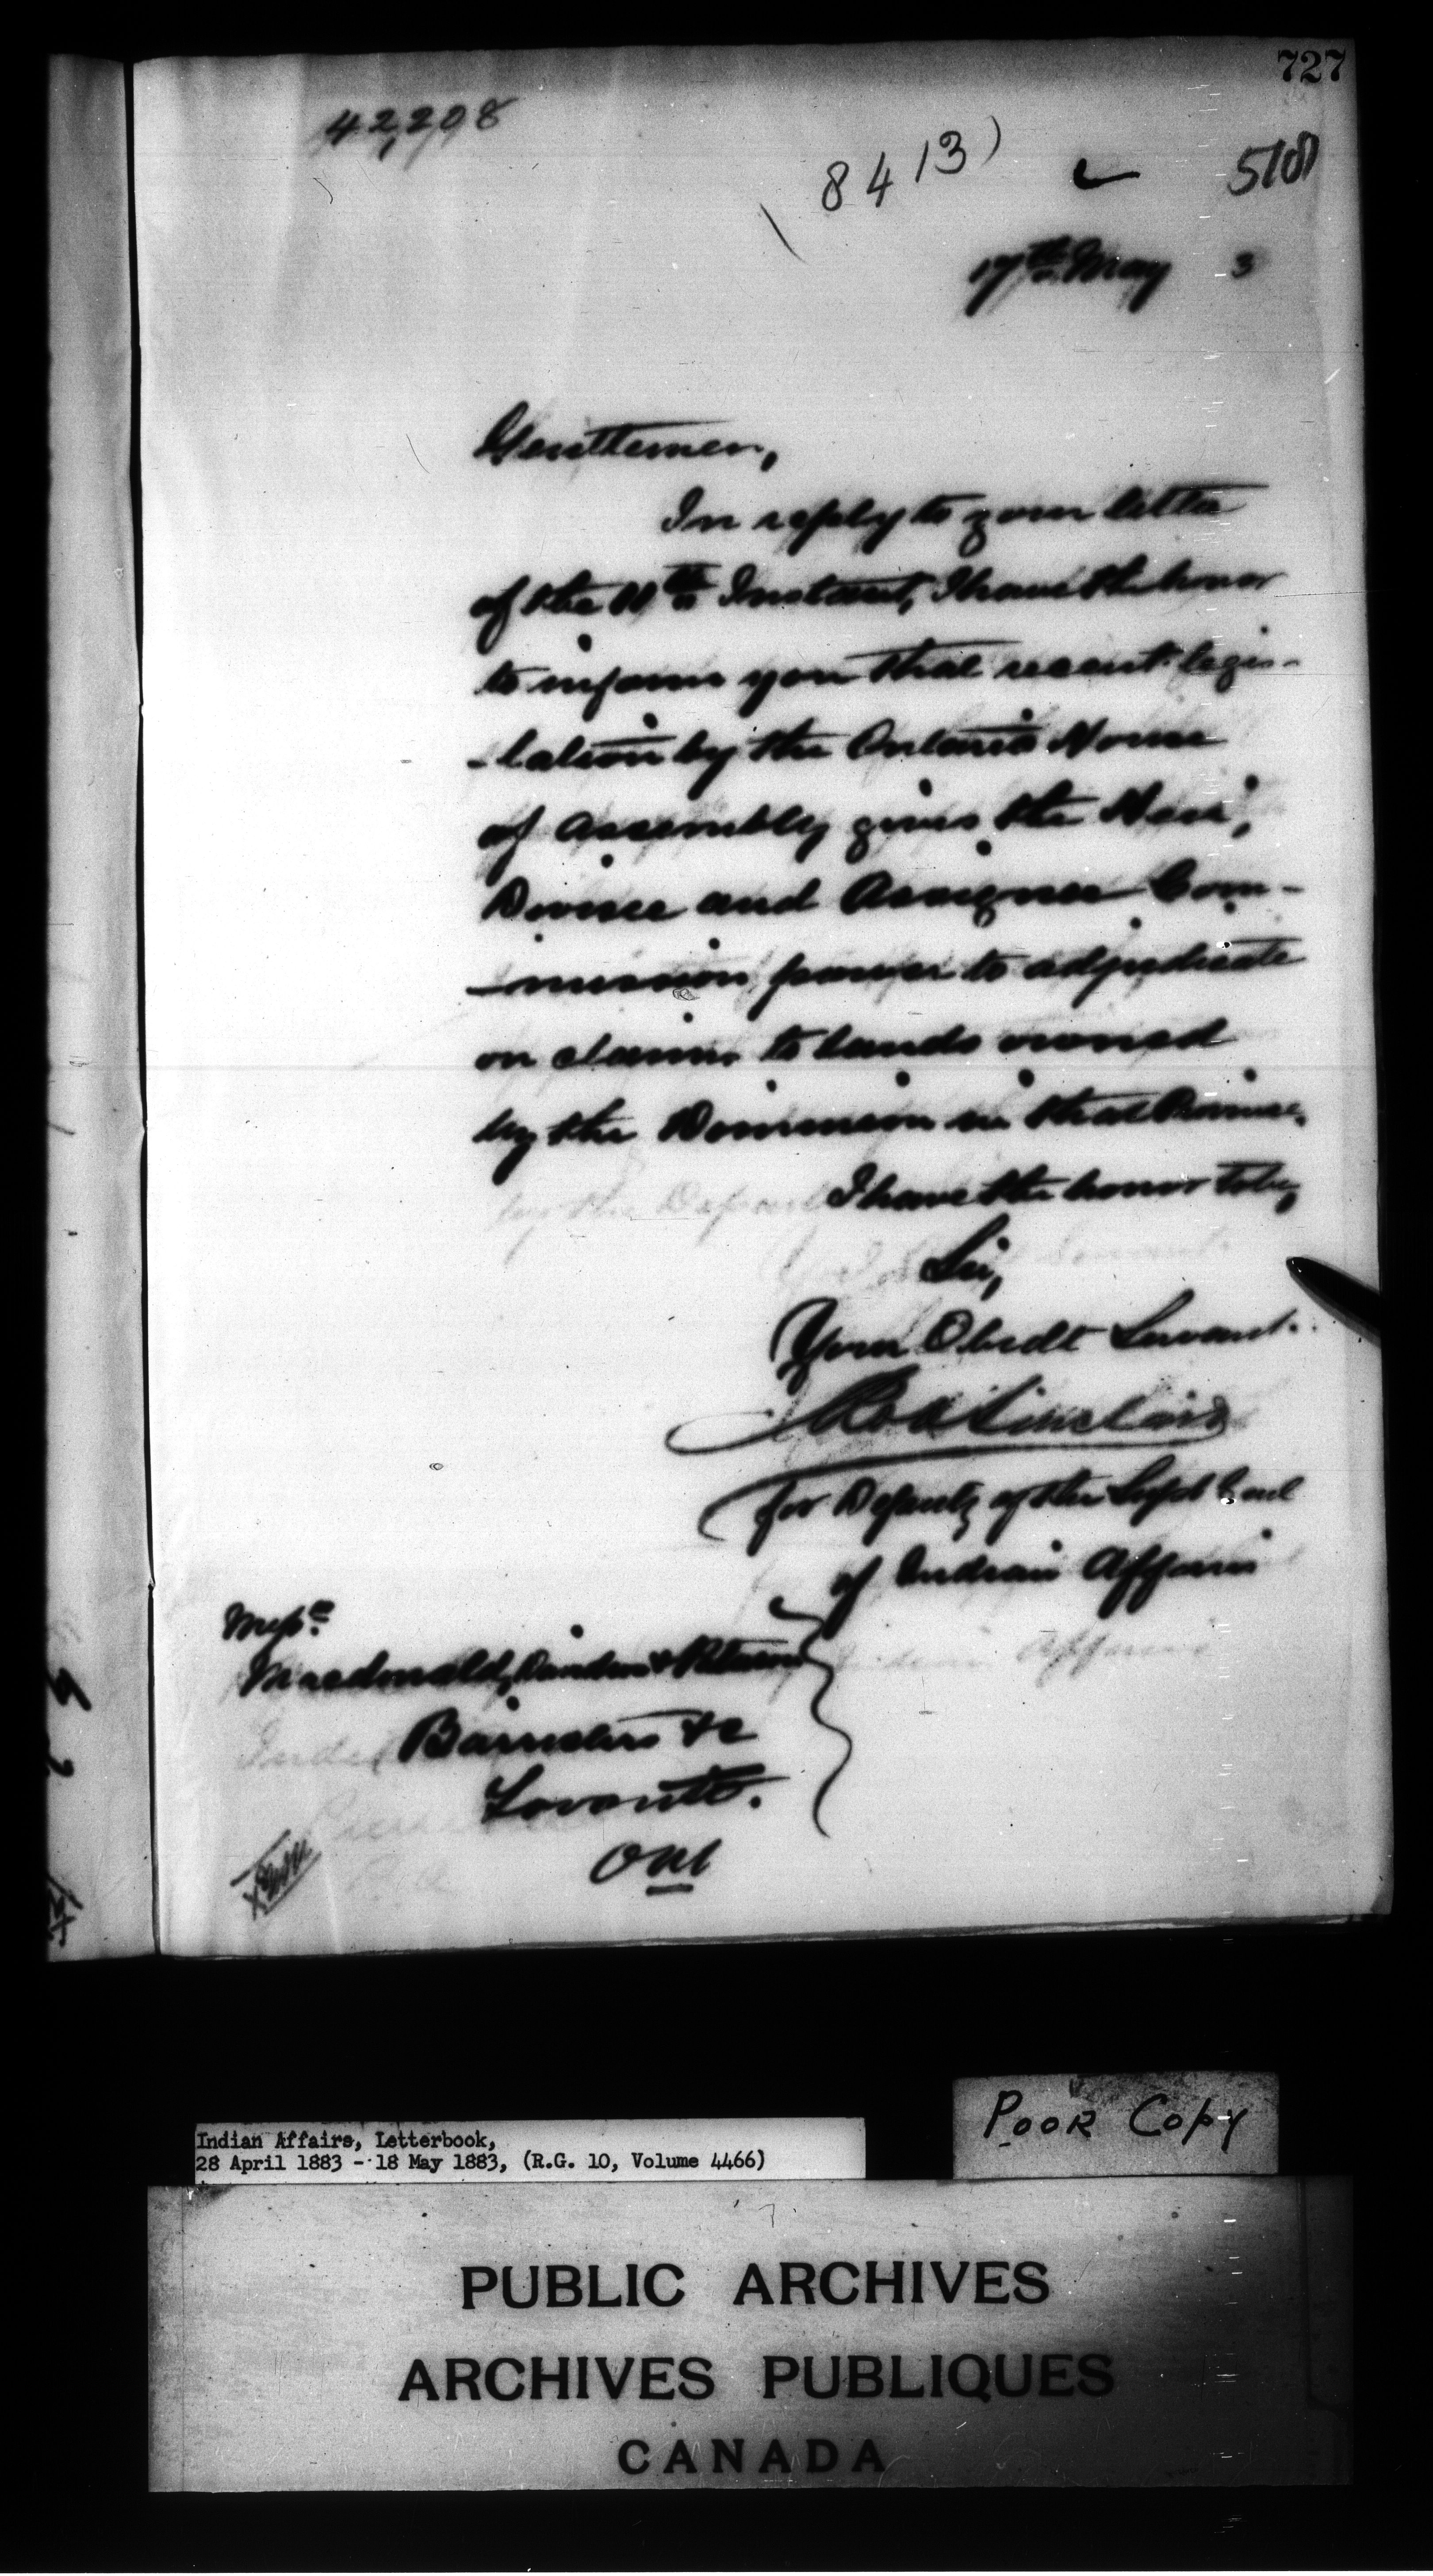 727
42,208
8413)
518
17th May 3
Gentlemen,
In reply to your letter
of the 11th Instant, I have the honor
to inform you that recent legis-
-lation by the Ontario House
of Assembly gives the Heir,
Devisee and Assignee Com-
-mission power to adjudicate
on claims to lands owned
by the Dominion in that Province.
I have the honor to be,
Sir,
Your Obedt Servant.
Rob Sinclair
for Deputy of the Supt Genl
of Indian Affairs
Messrs
Macdonald, Davidson & Paterson
Barristers &c
Toronto.
Ont
Indian Affairs, Letterbook,
28 April 1883 - 18 May 1883, (R.G. 10, Volume 4466)
POOR COPY
PUBLIC ARCHIVES
ARCHIVES PUBLIQUES
CANADA